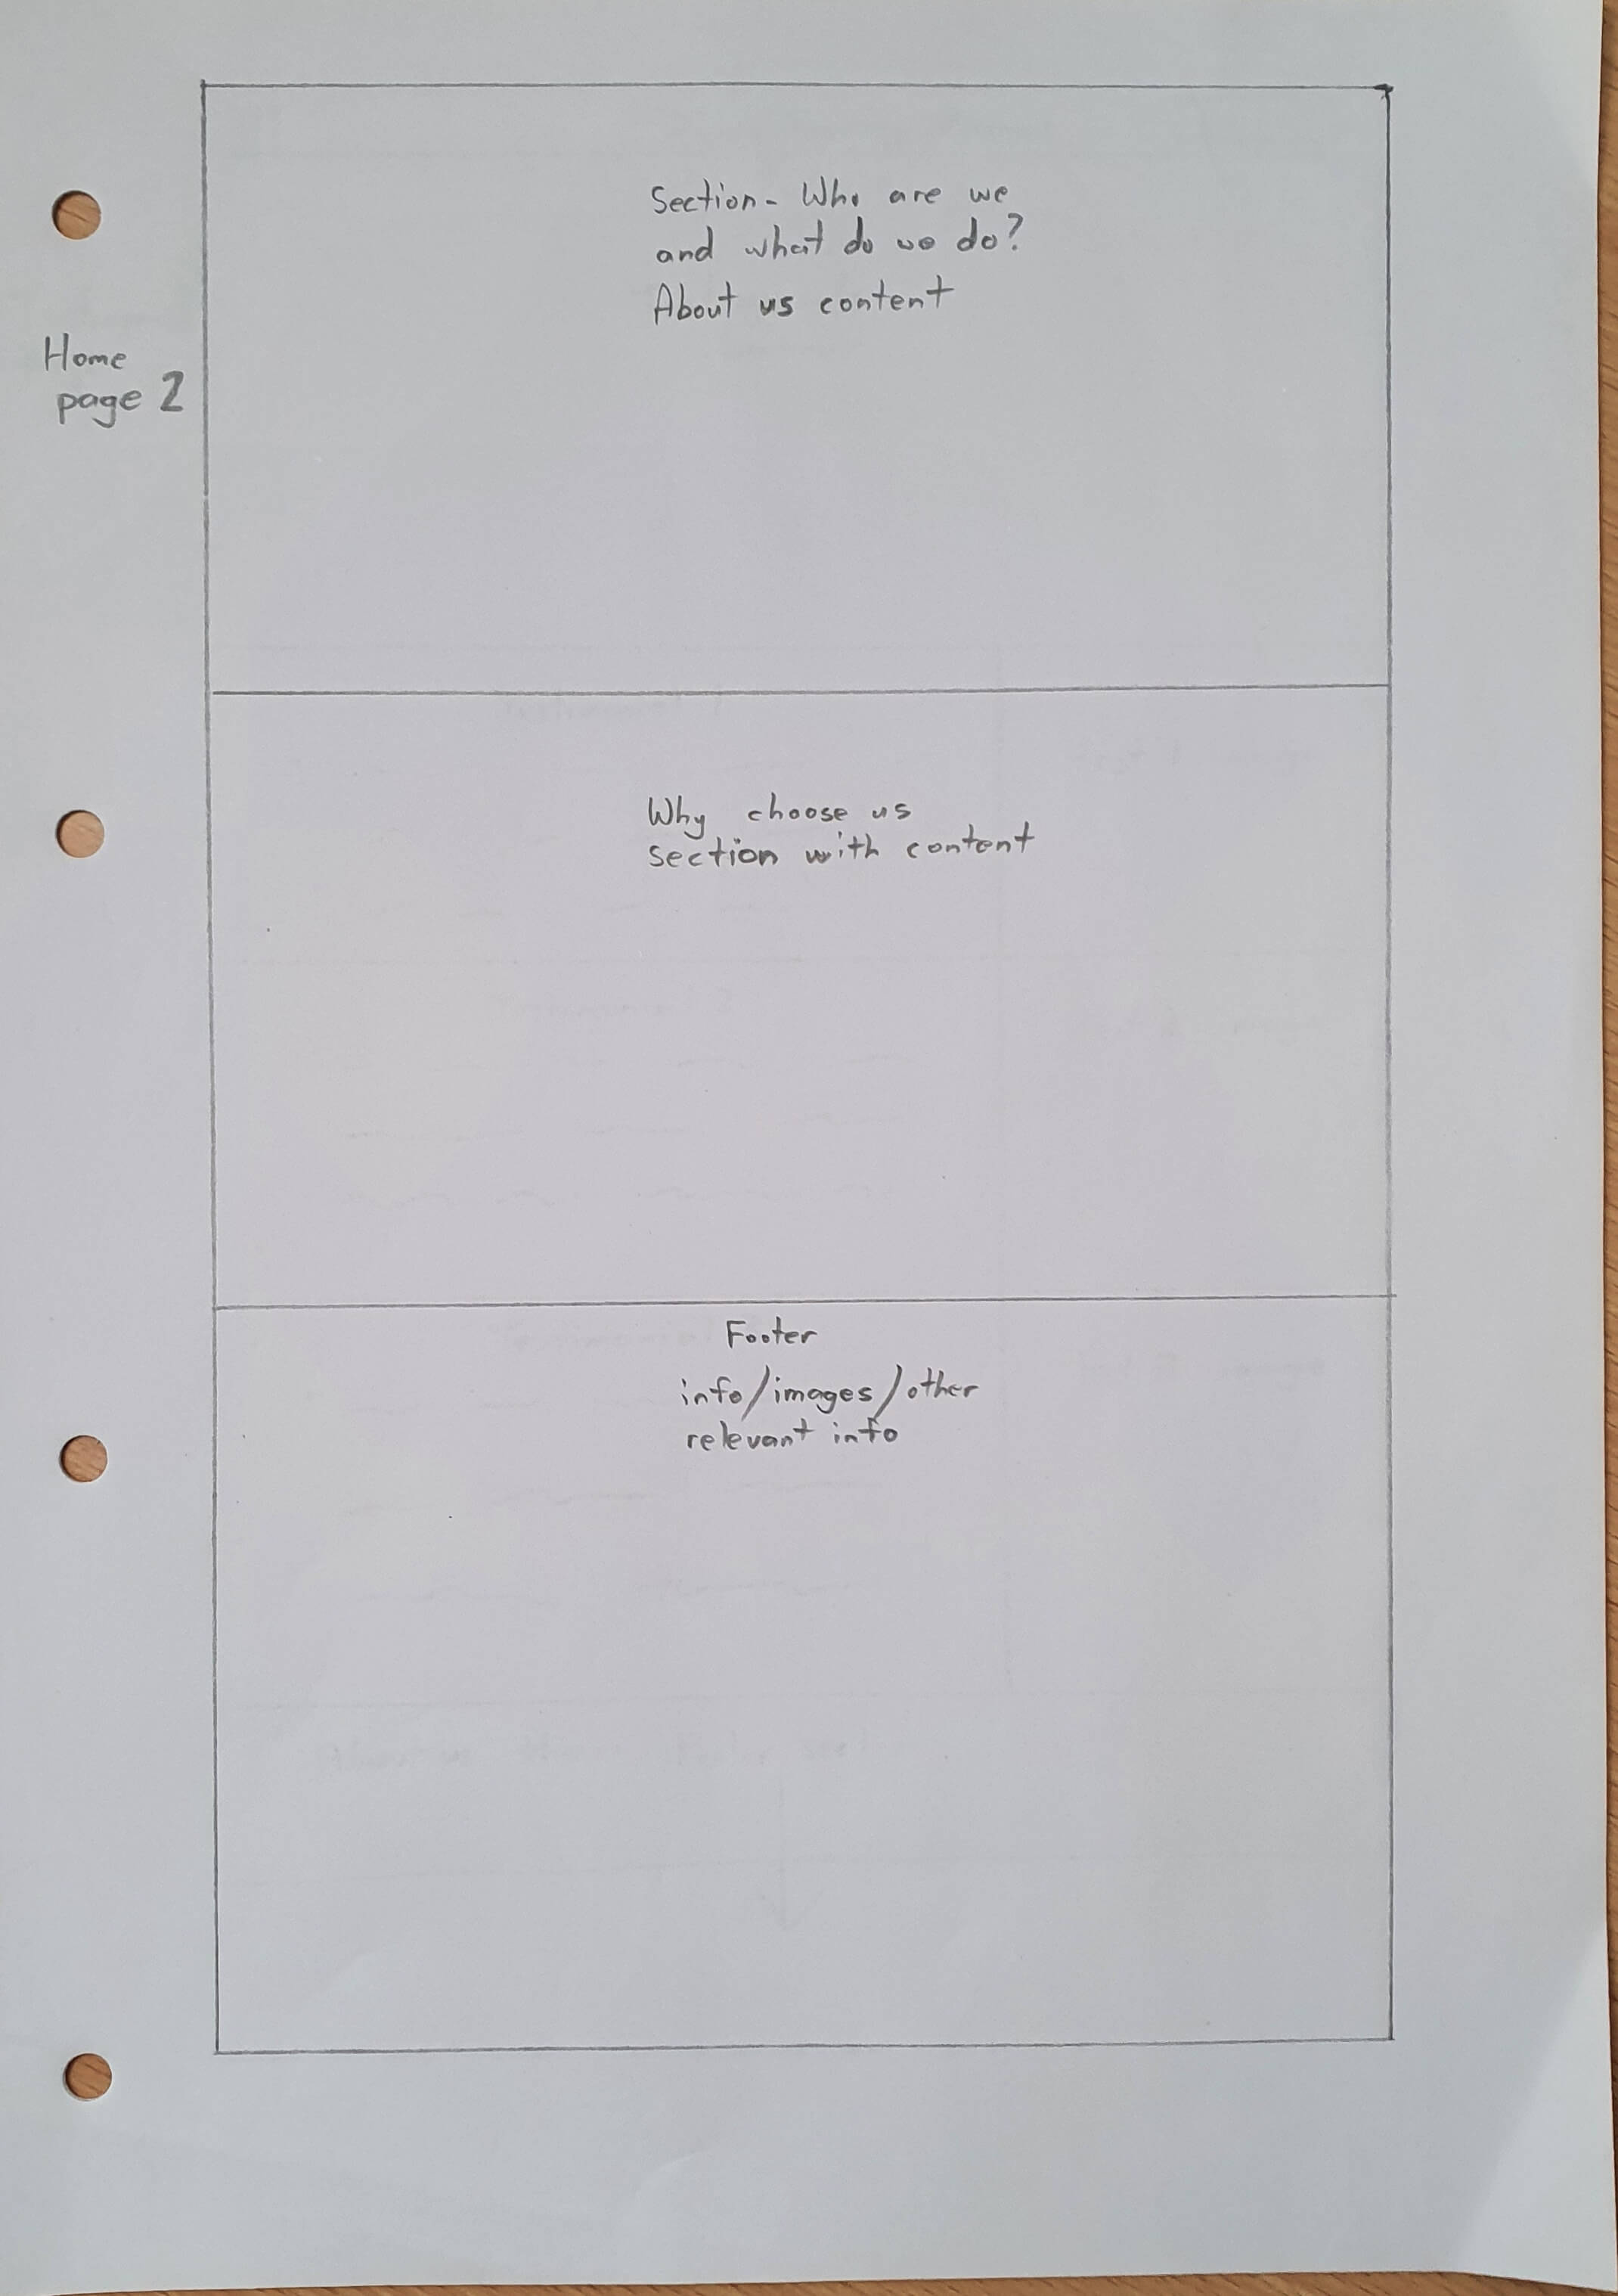 Section - Who are we
and what do we do?
About us content
Home
page 2
Why choose us
section with content
Footer
info/images/other
relevant info